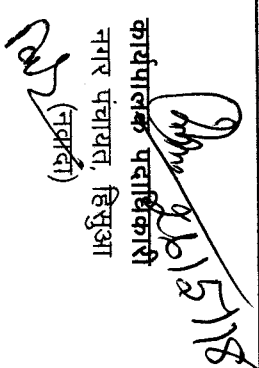 26/5/18
कार्यपालक पदाधिकारी
नगर पंचायत, हिसुआ
(नवादा)